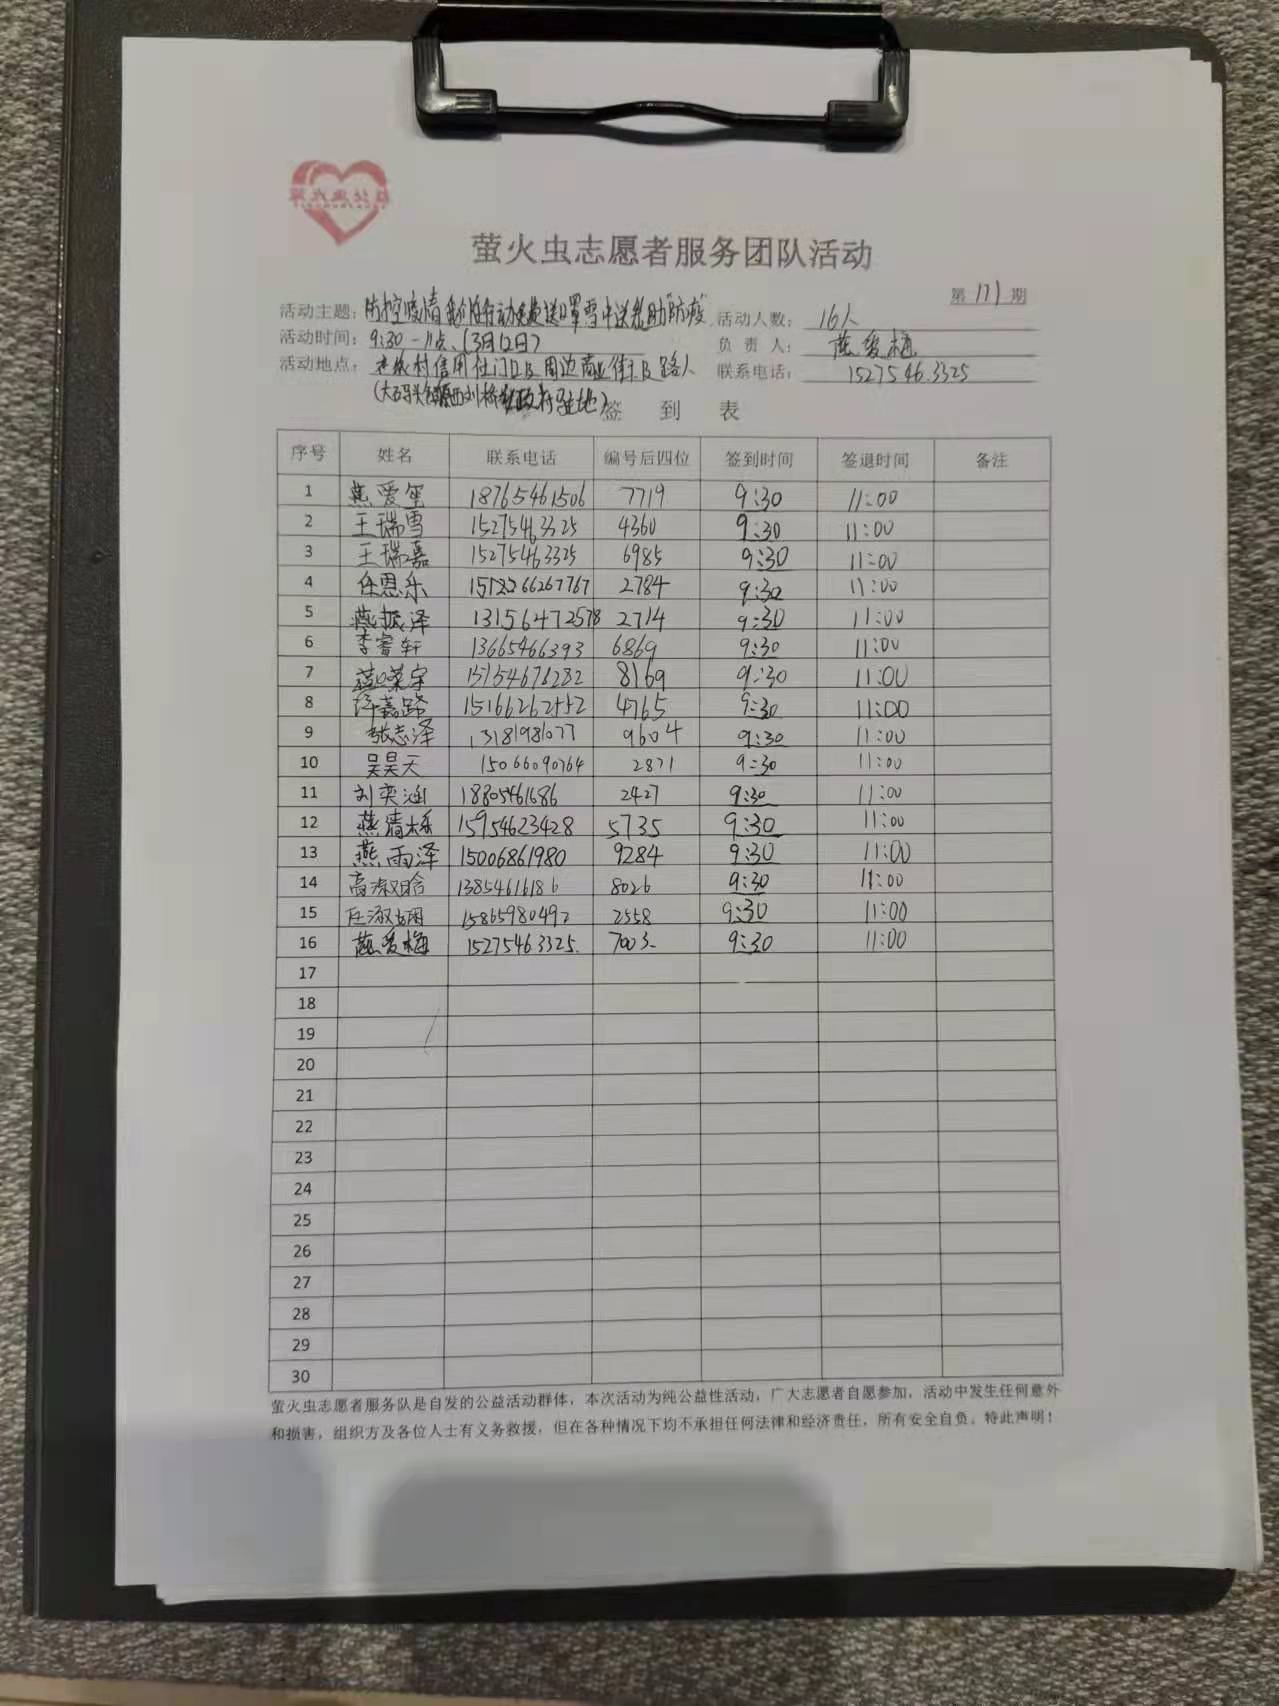 萤火虫志愿者服务团队活动
第 171 期
活动主题：防控疫情 送口罩雪中送炭助"防疫" 活动人数： 16人
活动时间：9:30-11点（3月12日） 负 责 人： 燕爱梅
活动地点： 农村信用社门口及周边商业街及路人 联系电话： 15275463325
签 到 表
序号 姓名 联系电话 编号后四位 签到时间 签退时间 备注
1 燕爱玺 18765461506 7719 9:30 11:00
2 王瑞雪 15275463325 4360 9:30 11:00
3 王瑞嘉 15275463325 6985 9:30 11:00
4 任恩乐 2784 9:30 11:00
5 燕振泽 13156472578 2714 9:30 11:00
6 李睿轩 13665466393 6869 9:30 11:00
7 8169 9:30 11:00
8 许嘉路 15166262552 4765 9:30 11:00
9 张志泽 13181981077 9604 9:30 11:00
10 吴昊天 15066090764 2871 9:30 11:00
11 刘奕涵 18805461686 2427 9:30 11:00
12 燕清 15954623428 5735 9:30 11:00
13 燕雨泽 15006861980 9284 9:30 11:00
14 高淑晗 13854616186 8026 9:30 11:00
15 任淑娴 15865980492 2558 9:30 11:00
16 燕爱梅 15275463325. 7003. 9:30 11:00
17
18
19
20
21
22
23
24
25
26
27
28
29
30
萤火虫志愿者服务队是自发的公益活动群体，本次活动为纯公益性活动，广大志愿者自愿参加，活动中发生任何意外
和损害，组织方及各位人士有义务救援，但在各种情况下均不承担任何法律和经济责任，所有安全自负。特此声明！